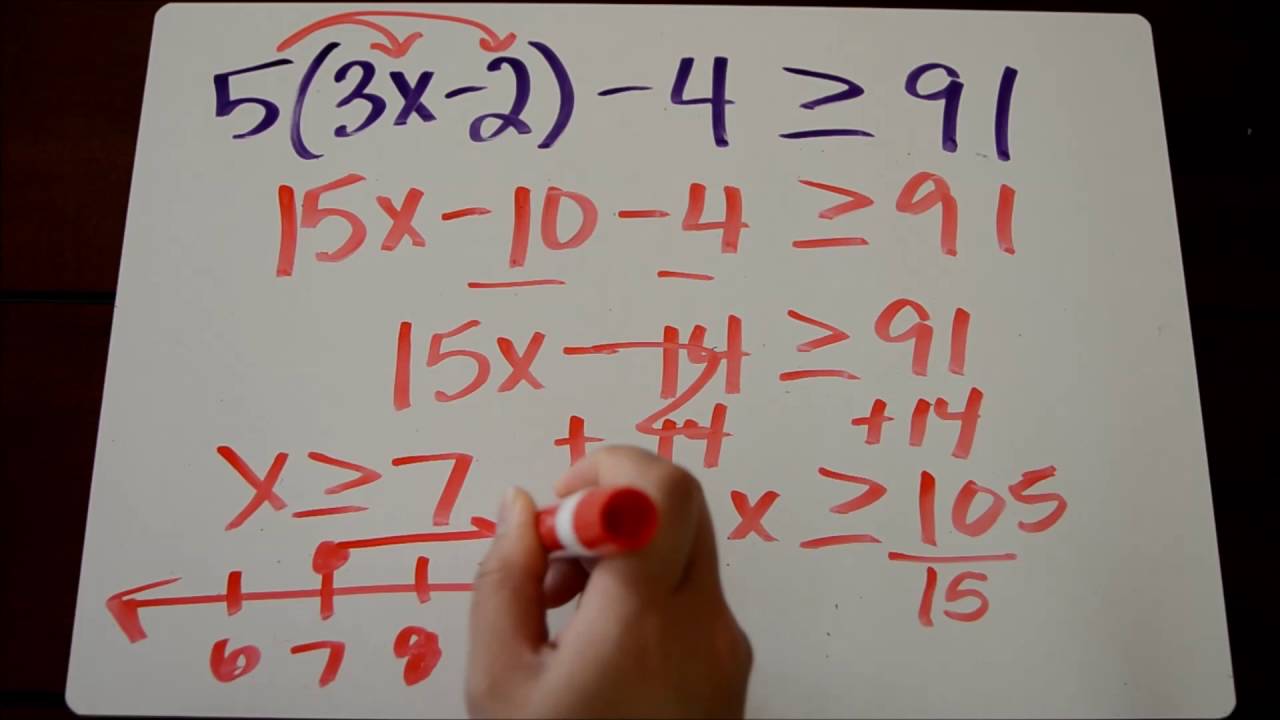 5(3x-2)-4 ≥ 91
15x-10-4 ≥ 91
15x-14 ≥ 91
+14 +14
x ≥ 105
15
x ≥ 7
6 7 8